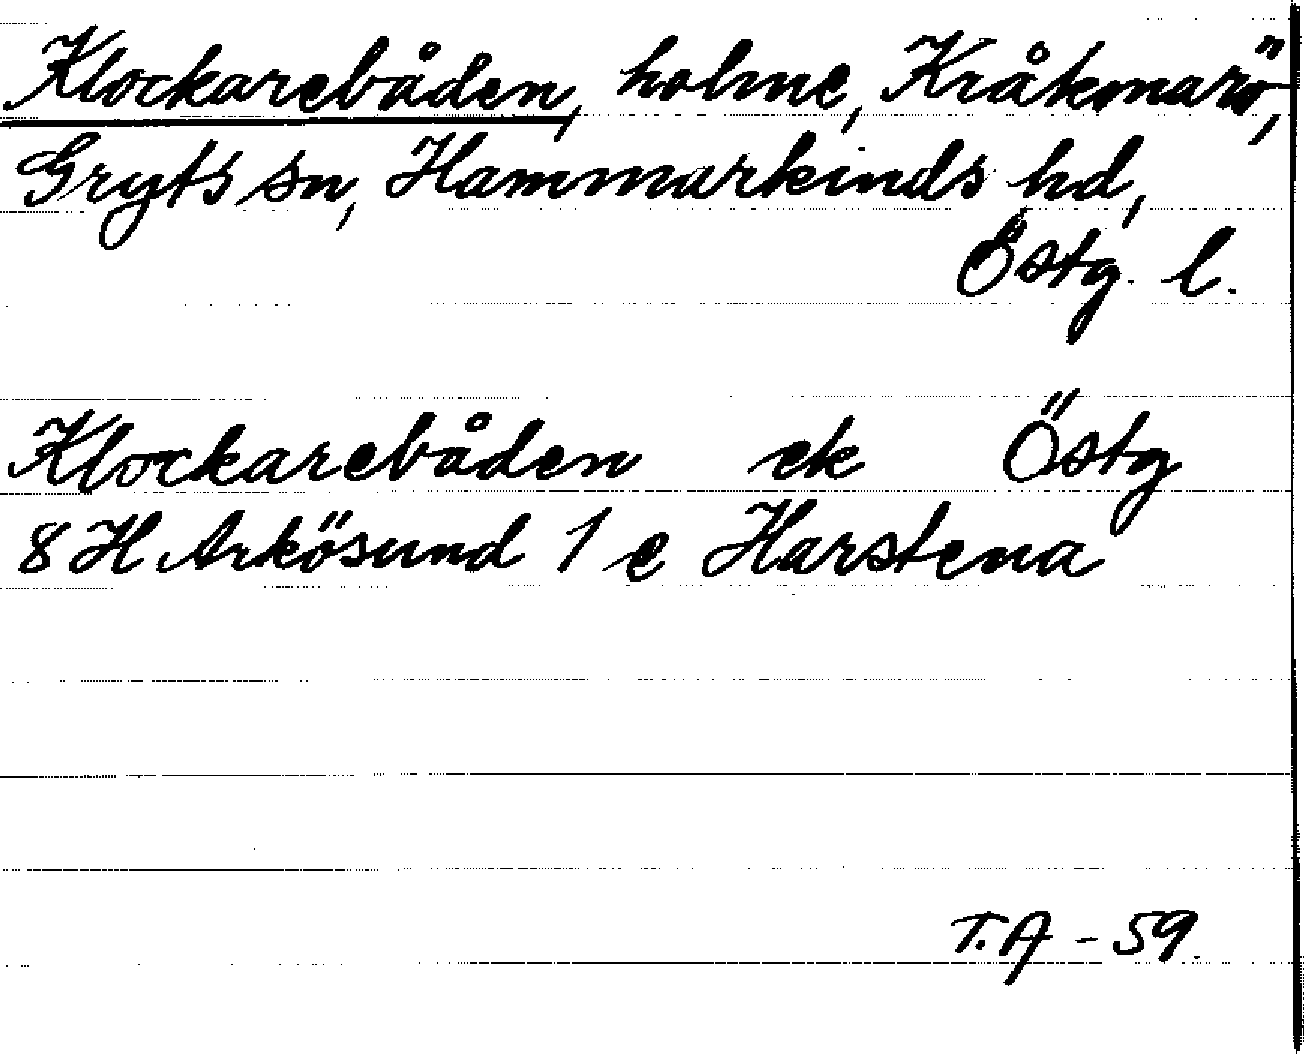 Klockarebåden, holme, Kråkmarö,
Gryts sn, Hammarkinds hd,
Östg. l.
Klockarebåden ek Östg
8 H Arkösund 1 e Harstena
T.A - 59.